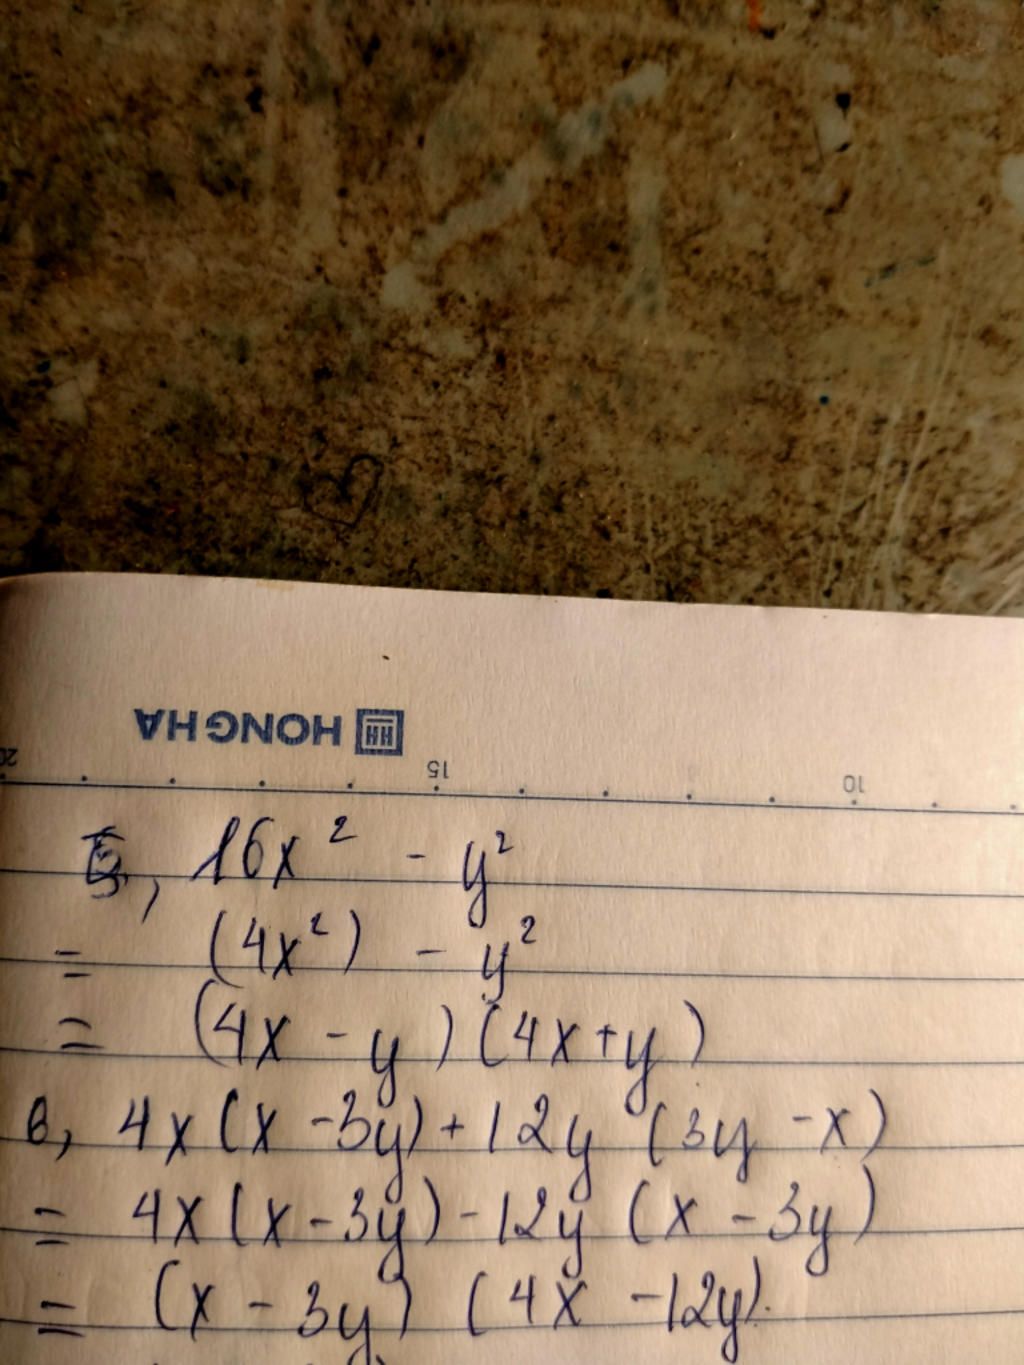 HONG HA
20 15 10
5, 16x² - y²
= (4x²) - y²
= (4x - y) (4x + y)
6, 4x (x - 3y) + 12y (3y - x)
= 4x (x - 3y) - 12y (x - 3y)
= (x - 3y) (4x - 12y).